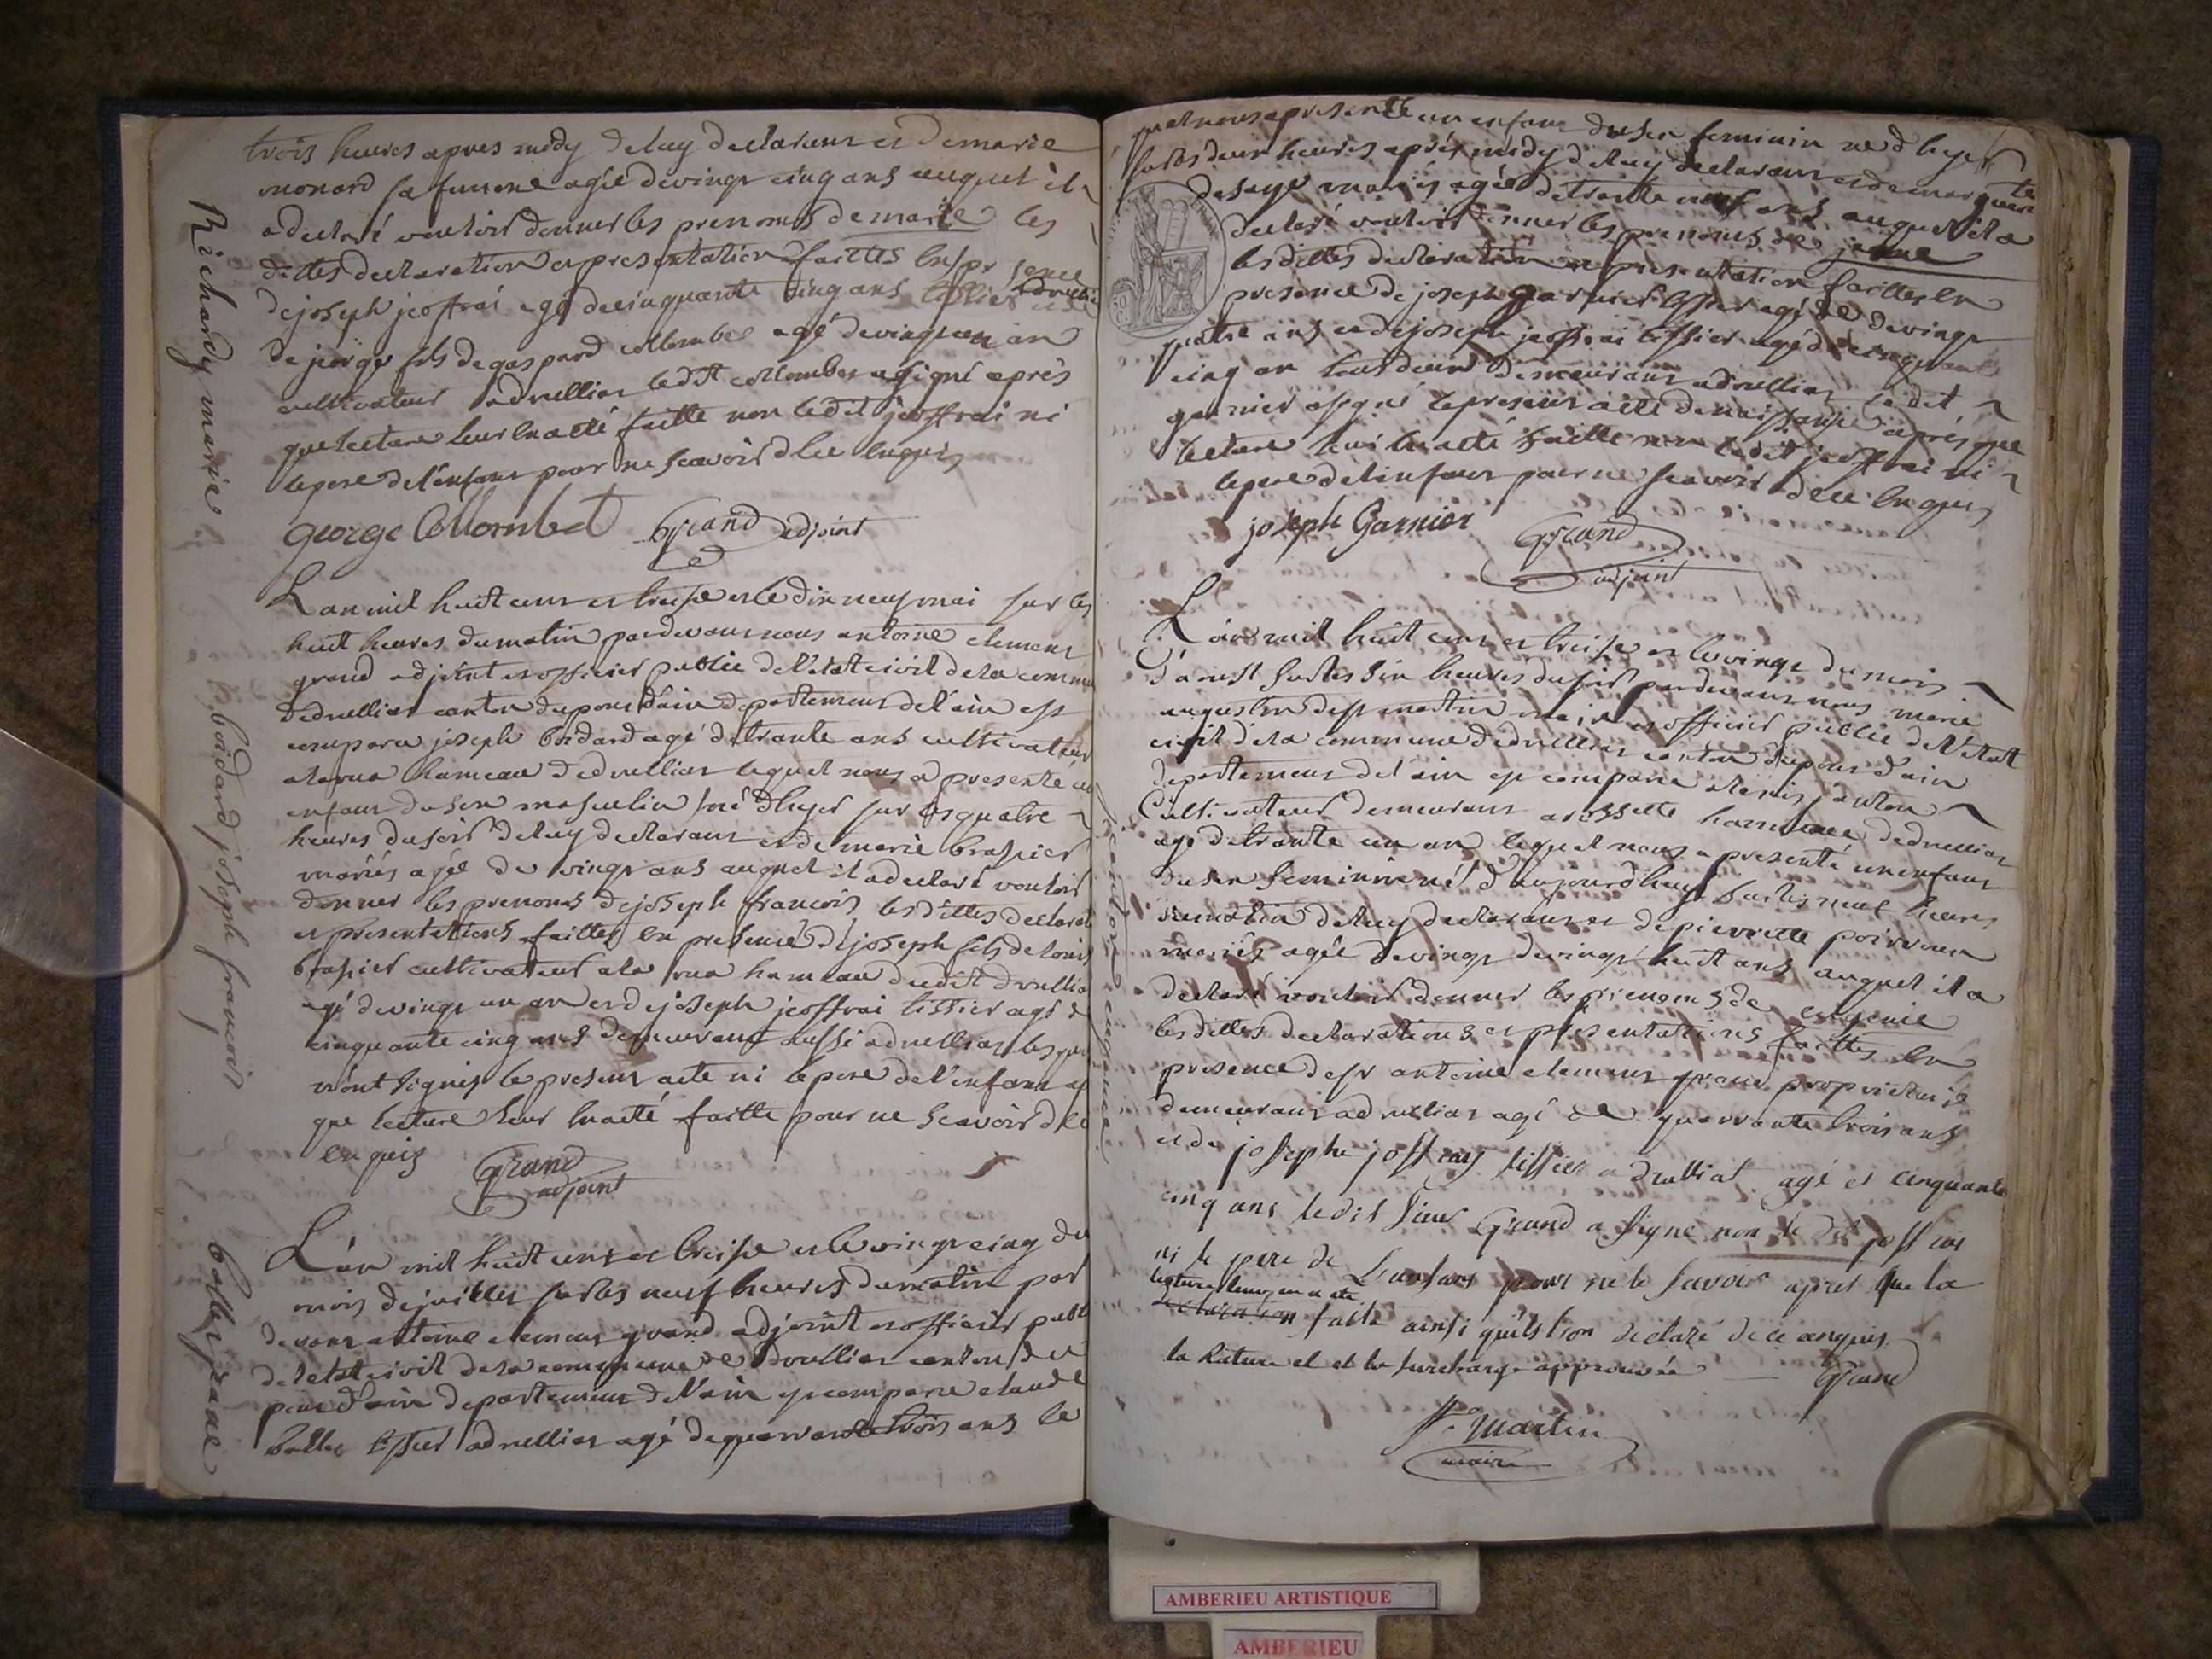 trois heures apres midy deluy declarant et demarie
monard sa femme agée devingt cinq ans auquel il
adeclaré vouloir donner les prenoms demarie les
dittes declaration et presentation faittes en presence
dejoseph jeoffrai agé decinquante cinq ans tissier adrullia
de jeorge fils degaspard collombet agé devingt un an
cultivateur adrullias ledit collombet asigné après
que lecture leur enaété faitte non ledit jeoffrai ni
lepere delenfant pour ne scavoir dece enquis
george Collombet Grand adjoint
Richardy marie
Lan mil huit cent et treise et le dix neuf mai sur les
huit heures dumatin pardevant nous antoine clement
grand adjoint et officier public del'état civil dela commune
dedrullias canton dupont d'ain departement del'ain est
comparu joseph boidard agé detrante ans cultivateur
alarua hameau dedrullias lequel nous a presenté un
enfant dusex masculin né dhyer sur les quatre
heures dusoir deluy declarant et de marie brasier
mariés agée de vingt ans auquel il adeclaré vouloir
donner les prenoms dejoseph francois les dittes declarat
et presentations faittes en presence de joseph fils de louis
brasier cultivateur ala rua hameau dudit drullia
agé devingt un an et dejoseph jeoffrai tissier agé de
cinquante cinq ans demeurant aussi adrullias lesquels
n'ont signés le present acte ni lepere de l'enfant a
que lecture leur enaété faitte pour ne scavoir dece
enquis Grand
adjoint
boidard joseph francois
L'an mil huit cent et treise et le vingt cinq du
mois dejuillet sur les neuf heures dumatin par
devant antoine clement grand adjoint et officier publ
del'etat civil dela commune de drullias canton du
pont d'ain departement de l'ain est comparu claude
ballet tissier adrullias agé dequarrante trois ans le
ballet jeane
quel nous a presenté un enfant dusex feminin né d'hyer
sur les deux heures après midy deluy declarant et de marguerite
desaye mariés agée detrante neuf ans auquel il a
declaré vouloir donner les prenoms de jeane
les dittes declaration et presentation faittes en
presence de joseph garnier tissier agé de devingt
quatre ans et dejoseph jeoffrai tissier agé de cinquante
cinq an tous deux demeurant adrullias ledit
garnier asigné lepresent acte denaissance après que
lecture leur enaété faitte non ledit jeoffrai ni
lepere delenfant pour ne scavoir dece enquis
joseph Garnier Grand
adjoint
L'an mil huit cent et treise et le vingt du mois
d'aoust sur les six heures dusoir pardevant nous marie
augustin de st martin maire et officier public del'état
civil dela commune dedrullias canton dupont d'ain
departement del'ain est comparu
Cultivateur demeurant arossette hammeau dedrullias
agé detrante un an lequel nous a presenté un enfant
dusex feminin né d'aujourdhuy sur les neuf heures
dumatin deluy declarant et depierrette
mariés agée devingt devingt huit ans auquel il a
declaré vouloir donner les prenoms de eugenie
les dittes declarations et presentations faittes en
presence de sr antoine clement grand proprietaire
demeurant adrullias agé de quarrante trois ans
et de josephe joffray tissier a drulliat agé et cinquante
cinq ans ledit sieur Grand a signé non le dit joffray
ni le pere de L'enfant pour ne le savoir apres que la
lecture leur en a été
declaration faite ainsi quils l'on declaré de ce enquis
la Rature et et la surcharge approuvée Grand
St Martin
maire
eugenie
AMBERIEU ARTISTIQUE
AMBERIEU